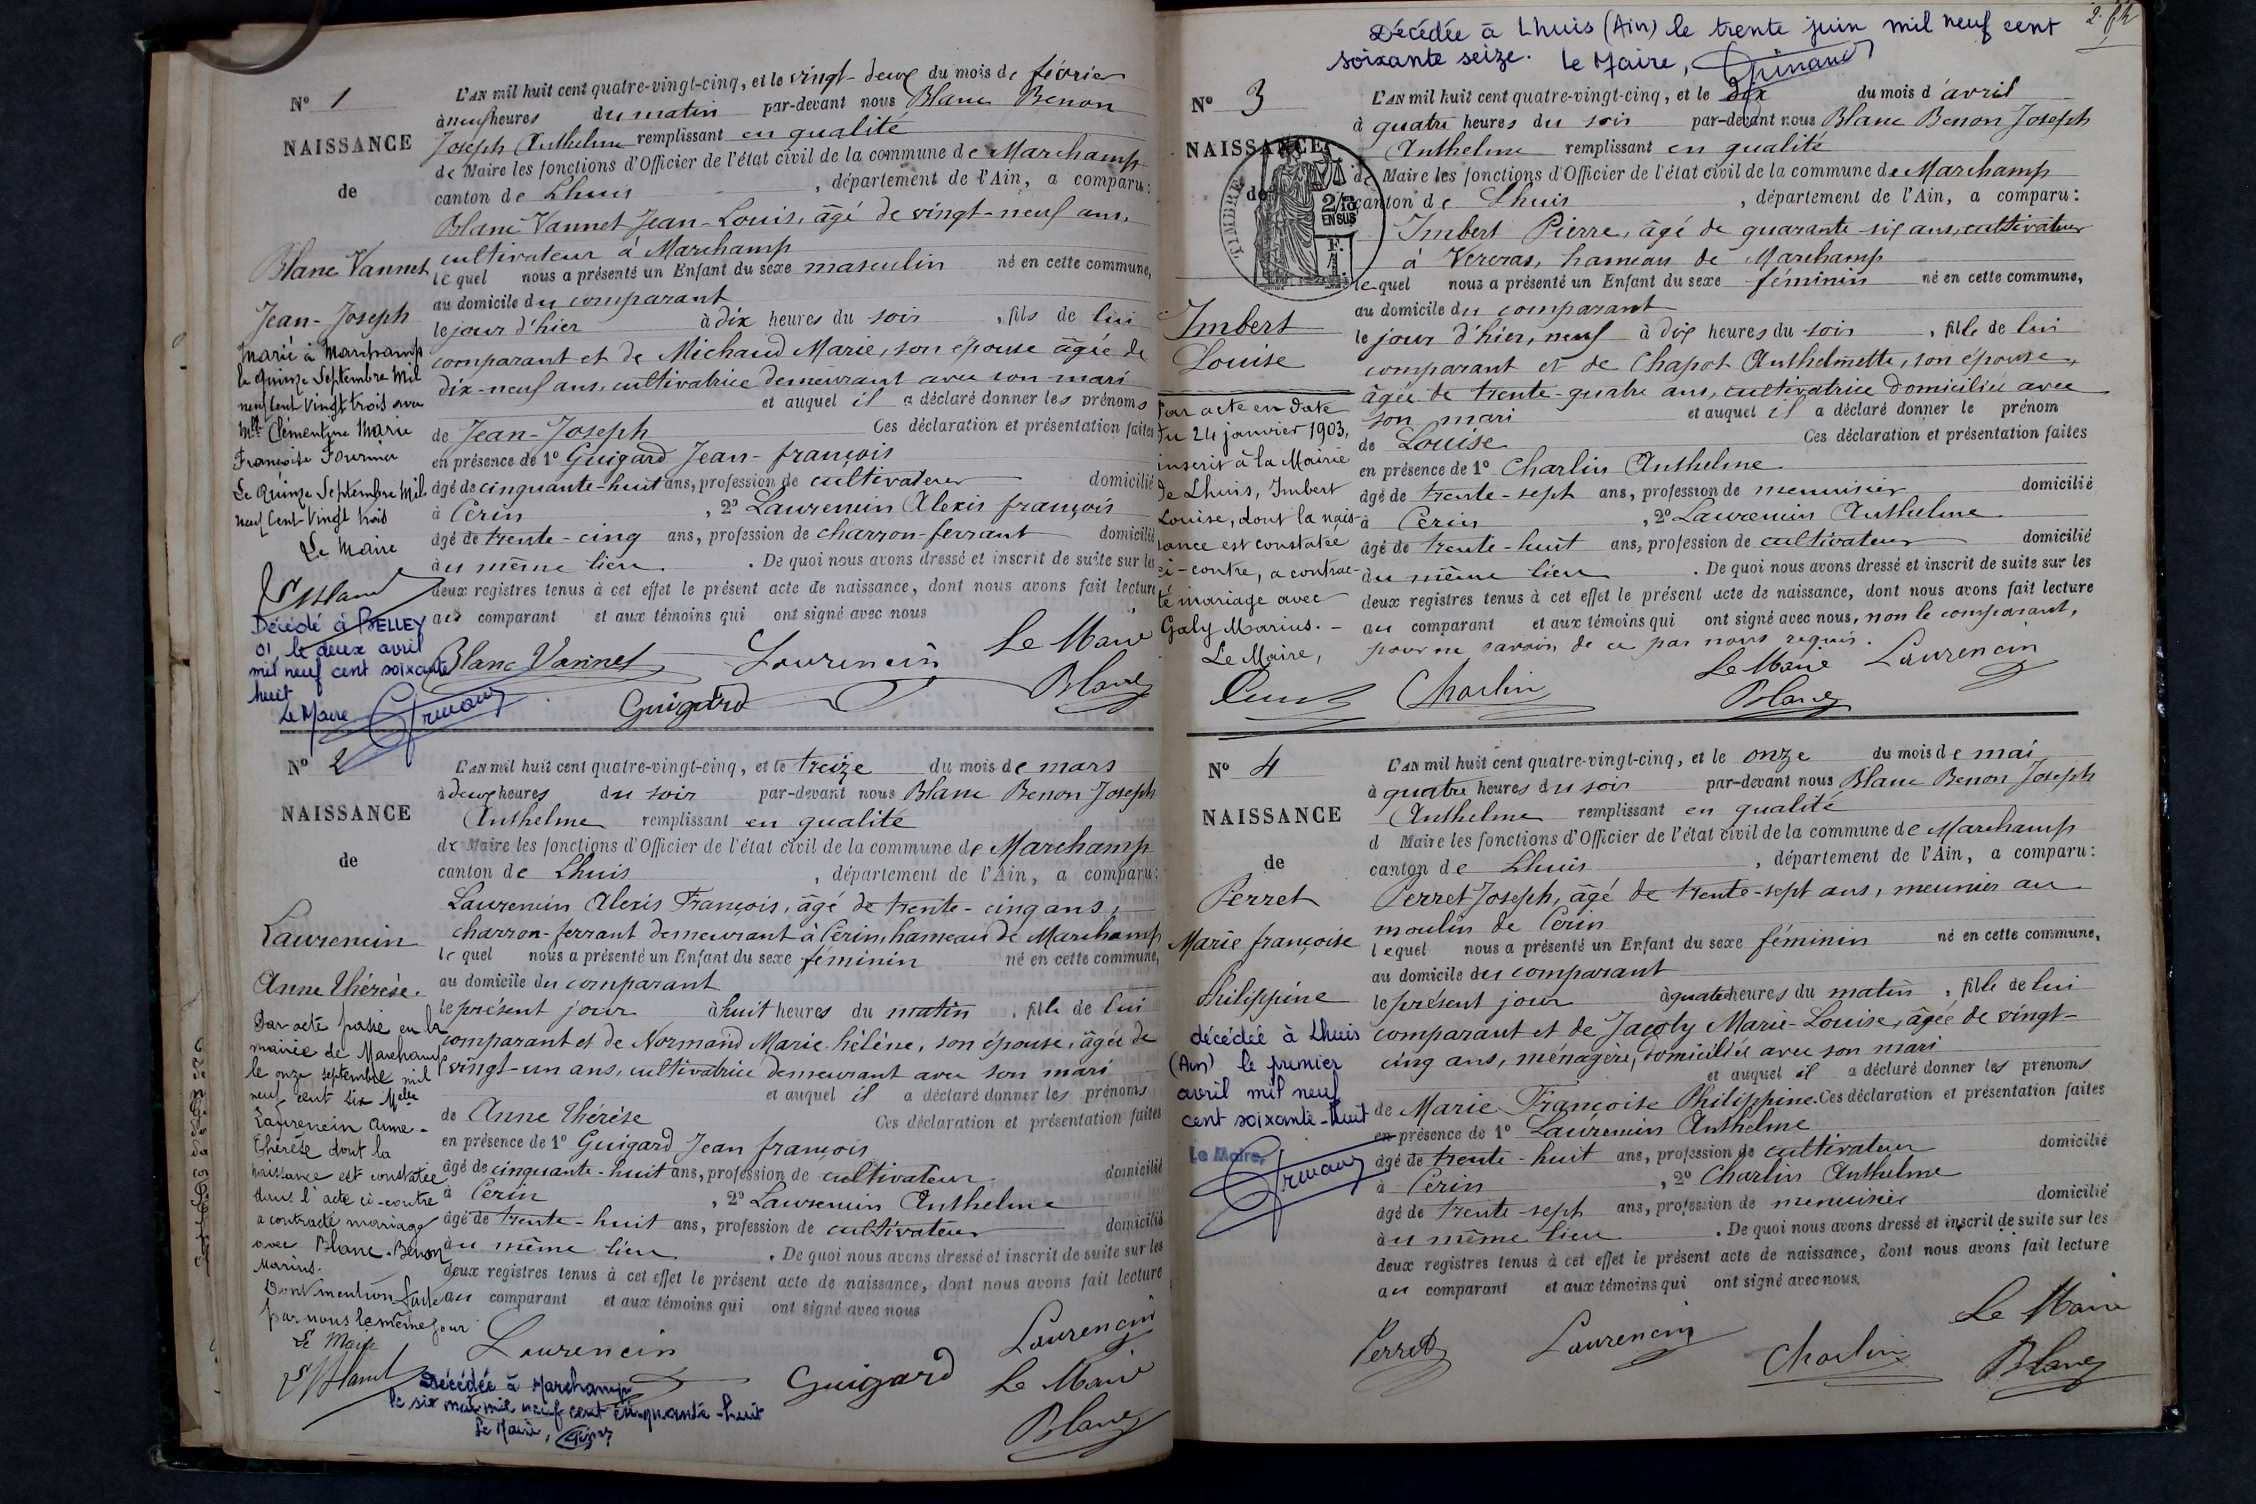 N° 1
NAISSANCE
de
Blanc Vannet
Jean-Joseph
Marié à Marchamp
le quinze Septembre Mil
neuf Cent Vingt trois avec
Mlle Clémentine Marie
Françoise Fournier
Le Quinze Septembre Mil
neuf Cent Vingt trois
Le Maire
Décédé à BELLEY
01, le deux avril
mil neuf cent soixante
huit
Le Maire
L'AN mil huit cent quatre-vingt-cinq, et le vingt-deux du mois de février
à neuf heures du matin par-devant nous Blanc Benon
Joseph Anthelme remplissant en qualité
de Maire les fonctions d'Officier de l'état civil de la commune de Marchamp
canton de Lhuis, département de l'Ain, a comparu:
Blanc Vannet Jean-Louis, âgé de vingt-neuf ans,
cultivateur à Marchamp
lequel nous a présenté un Enfant du sexe masculin né en cette commune,
au domicile du comparant
le jour d'hier à dix heures du soir, fils de lui
comparant et de Michaud Marie, son épouse âgée de
dix-neuf ans, cultivatrice demeurant avec son mari
et auquel il a déclaré donner les prénoms
de Jean-Joseph Ces déclaration et présentation faites
en présence de 1° Guigard Jean-françois
âgé de cinquante-huit ans, profession de cultivateur domicilié
à Cerin, 2° Laurencin Alexis françois
âgé de trente-cinq ans, profession de charron-ferrant domicilié
au même lieu. De quoi nous avons dressé et inscrit de suite sur les
deux registres tenus à cet effet le présent acte de naissance, dont nous avons fait lecture
au comparant et aux témoins qui ont signé avec nous
Blanc Vannet Laurencin Le Maire
Guigard Blanc
N° 2
NAISSANCE
de
Laurencin
Anne Thérèse.
Par acte passé en la
mairie de Marchamp
le onze septembre mil
neuf cent dix Melle
Laurencin Anne-
Thérèse dont la
naissance est constatée
dans l'acte ci-contre
a contracté mariage
avec Blanc-Benon
Marius.
Dont mention faite
par nous le même jour
Le Maire
L'AN mil huit cent quatre-vingt-cinq, et le treize du mois de mars
à deux heures du soir par-devant nous Blanc Benon Joseph
Anthelme remplissant en qualité
de Maire les fonctions d'Officier de l'état civil de la commune de Marchamp
canton de Lhuis, département de l'Ain, a comparu:
Laurencin Alexis François, âgé de trente-cinq ans,
charron-ferrant demeurant à Cerin, hameau de Marchamp
lequel nous a présenté un Enfant du sexe féminin né en cette commune,
au domicile du comparant
le présent jour à huit heures du matin, fille de lui
comparant et de Normand Marie hélène, son épouse, âgée de
vingt-un ans, cultivatrice demeurant avec son mari
et auquel il a déclaré donner les prénoms
de Anne Thérèse Ces déclaration et présentation faites
en présence de 1° Guigard Jean françois
âgé de cinquante-huit ans, profession de cultivateur domicilié
à Cerin, 2° Laurencin Anthelme
âgé de trente-huit ans, profession de cultivateur domicilié
au même lieu. De quoi nous avons dressé et inscrit de suite sur les
deux registres tenus à cet effet le présent acte de naissance, dont nous avons fait lecture
au comparant et aux témoins qui ont signé avec nous
Laurencin Laurencin
Guigard Le Maire
Blanc
Décédée à Marchamp
le six mai mil neuf cent cinquante-huit
Le Maire,
2.
Décédée à Lhuis (Ain) le trente juin mil neuf cent
soixante seize. Le Maire,
N° 3
NAISSANCE
de
TIMBRE
2/10 EN SUS
Imbert
Louise
Par acte en date
du 24 janvier 1903,
inscrit à la Mairie
de Lhuis, Imbert
Louise, dont la nais-
sance est constatée
ci-contre, a contrac-
té mariage avec
Galy Marius.-
Le Maire,
L'AN mil huit cent quatre-vingt-cinq, et le dix du mois d'avril
à quatre heures du soir par-devant nous Blanc Benon Joseph
Anthelme remplissant en qualité
de Maire les fonctions d'Officier de l'état civil de la commune de Marchamp
canton de Lhuis, département de l'Ain, a comparu:
Imbert Pierre, âgé de quarante-six ans, cultivateur
à Vercras, hameau de Marchamp
lequel nous a présenté un Enfant du sexe féminin né en cette commune,
au domicile du comparant
le jour d'hier, neuf à dix heures du soir, fille de lui
comparant et de Chapot Anthelmette, son épouse,
âgée de trente-quatre ans, cultivatrice domiciliée avec
son mari et auquel il a déclaré donner le prénom
de Louise Ces déclaration et présentation faites
en présence de 1° Charlin Anthelme
âgé de trente-sept ans, profession de menuisier domicilié
à Cerin, 2° Laurencin Anthelme
âgé de trente-huit ans, profession de cultivateur domicilié
au même lieu. De quoi nous avons dressé et inscrit de suite sur les
deux registres tenus à cet effet le présent acte de naissance, dont nous avons fait lecture
au comparant et aux témoins qui ont signé avec nous, non le comparant,
pour ne savoir, de ce par nous requis.
Charlin Le Maire Laurencin
Blanc
N° 4
NAISSANCE
de
Perret
Marie françoise
Philippine
décédée à Lhuis
(Ain) le premier
avril mil neuf
cent soixante-huit
Le Maire,
L'AN mil huit cent quatre-vingt-cinq, et le onze du mois de mai
à quatre heures du soir par-devant nous Blanc Benon Joseph
Anthelme remplissant en qualité
d Maire les fonctions d'Officier de l'état civil de la commune de Marchamp
canton de Lhuis, département de l'Ain, a comparu:
Perret Joseph, âgé de trente-sept ans, meunier au
moulin de Cerin
lequel nous a présenté un Enfant du sexe féminin né en cette commune,
au domicile du comparant
le présent jour à quatre heures du matin, fille de lui
comparant et de Jacoly Marie-Louise, âgée de vingt-
cinq ans, ménagère, domiciliée avec son mari
et auquel il a déclaré donner les prénoms
de Marie Françoise Philippine. Ces déclaration et présentation faites
en présence de 1° Laurencin Anthelme
âgé de trente-huit ans, profession de cultivateur domicilié
à Cerin, 2° Charlin Anthelme
âgé de trente-sept ans, profession de menuisier domicilié
au même lieu. De quoi nous avons dressé et inscrit de suite sur les
deux registres tenus à cet effet le présent acte de naissance, dont nous avons fait lecture
au comparant et aux témoins qui ont signé avec nous.
Perret Laurencin Charlin Le Maire
Blanc